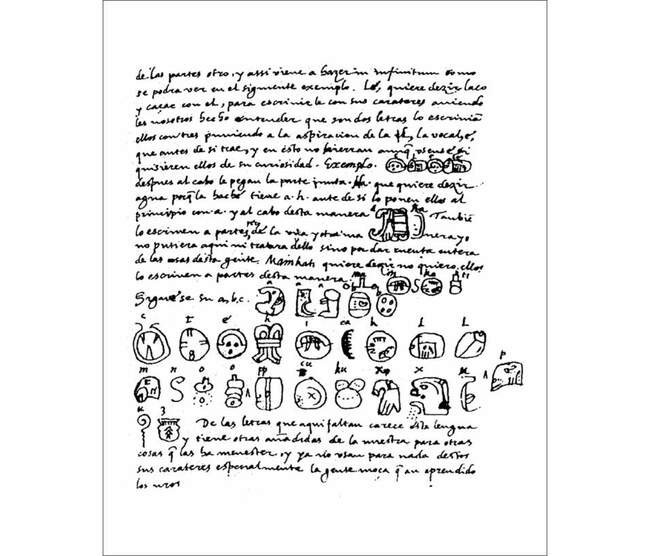 de las partes otro, y assi viene a hazer in infinitum como
se podra ver en el siguiente exemplo. Lé, quiere dezir laço
y caçar con el, para escrivirle con sus carateres aviendo
les nosotros hecho entender que son dos letras lo escrivian
ellos con tres puniendo a la aspiracion de la l, la vocal é,
que antes de si trae, y en esto no hierran aunq̄ si
quisieren ellos de su curiosidad. Exemplo.
despues al cabo le pegan la parte junta. Ha. que quiere dezir
agua porq̄ la haché tiene a. h. ante de si lo ponen ellos al
principio con a. y al cabo desta manera ha Tambiē
lo escriven a partes pero de la una y otra ma nera, yo
no pusiera aqui ni tratara dello sino por dar cuenta entera
de las cosas desta gente. Mainkati quiere dezir no quiero, ellos
lo escriven a partes desta manera ma i n ka ti
Siguese su a, b, c. a a a b b
c t é h i ca k l l
m n o o pp cu ku x x u p
u z De las letras que aqui faltan carece esta lengua
y tiene otras añadidas de la nuestra para otras
cosas q̄ las ha menester, y ya no usan para nada destos
sus carateres especialmente la gente moça q̄ an aprendido
los nros